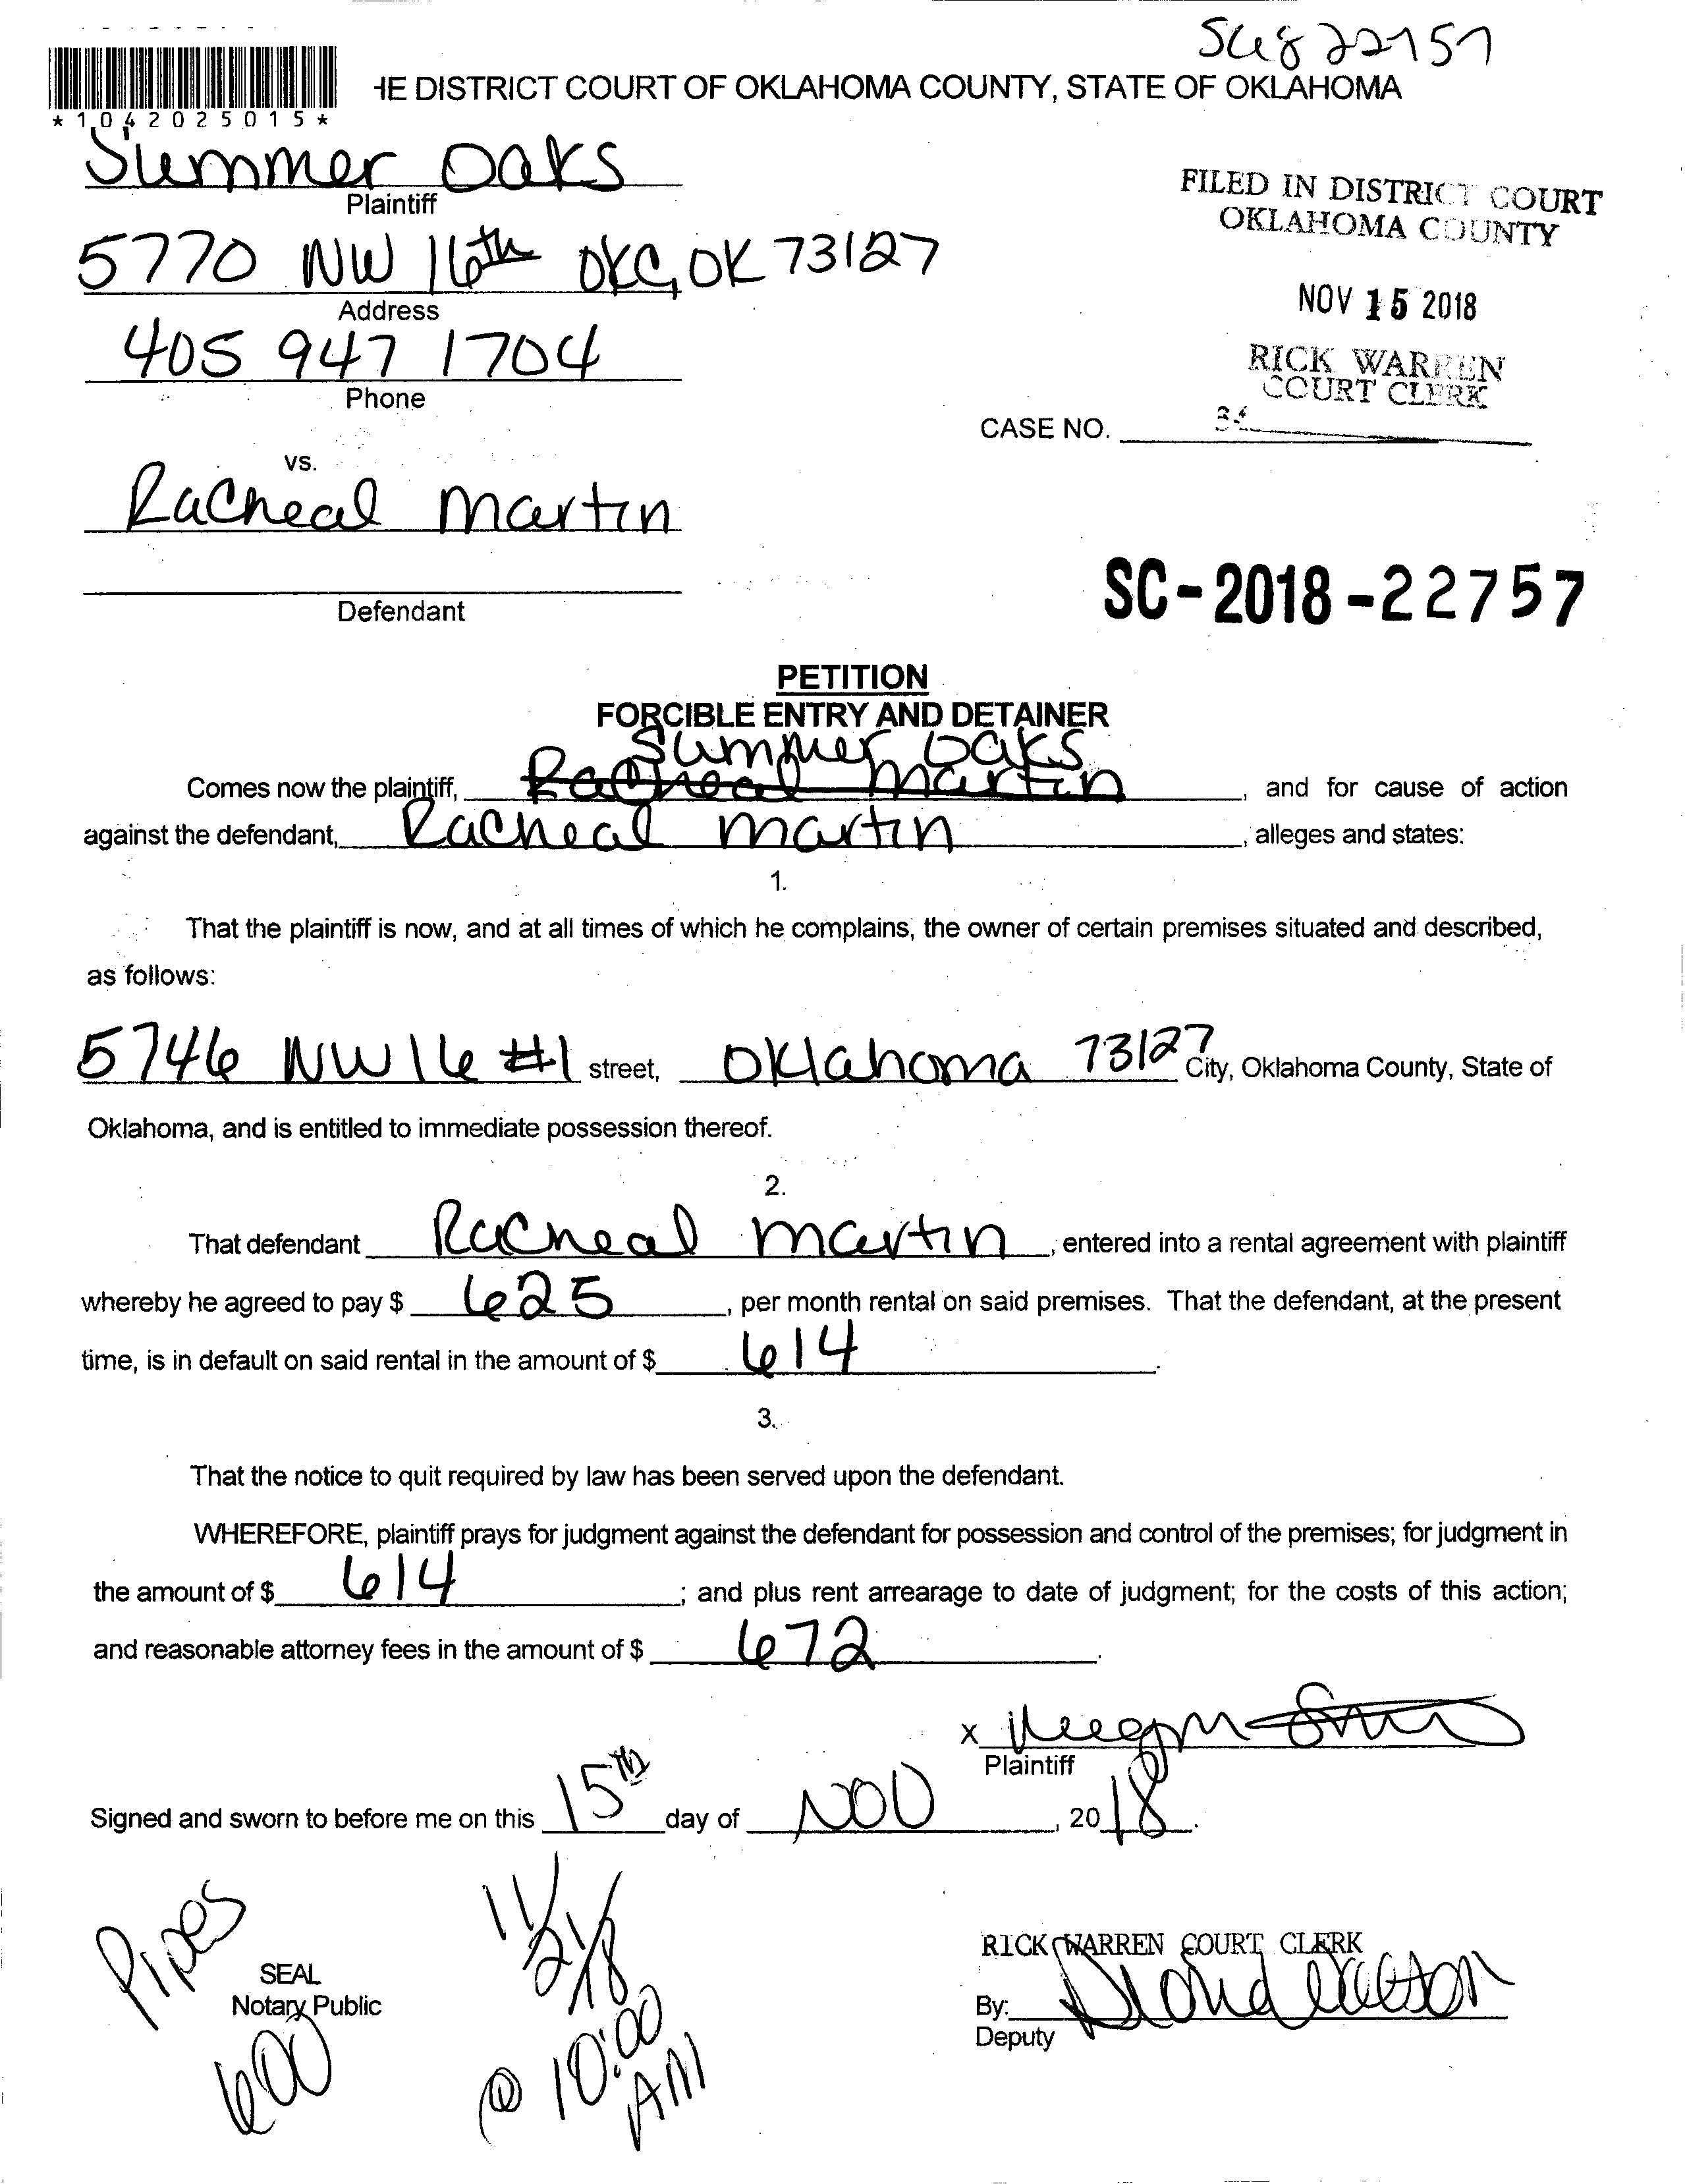 SC18 22757
HE DISTRICT COURT OF OKLAHOMA COUNTY, STATE OF OKLAHOMA
*1042025015*
Summer Oaks
Plaintiff
FILED IN DISTRICT COURT
OKLAHOMA COUNTY
5770 NW 16th OKC, OK 73127
Address
NOV 15 2018
405 947 1704
Phone
RICK WARREN
COURT CLERK
CASE NO.
vs.
Racheal Martin
SC-2018-22757
Defendant
PETITION
FORCIBLE ENTRY AND DETAINER
Summer Oaks
Comes now the plaintiff, Racheal Martin, and for cause of action
against the defendant, Racheal Martin, alleges and states:
1.
That the plaintiff is now, and at all times of which he complains, the owner of certain premises situated and described,
as follows:
5746 NW 16 #1 street, Oklahoma 73127 City, Oklahoma County, State of
Oklahoma, and is entitled to immediate possession thereof.
2.
That defendant Racheal Martin, entered into a rental agreement with plaintiff
whereby he agreed to pay $ 625, per month rental on said premises. That the defendant, at the present
time, is in default on said rental in the amount of $ 614.
3.
That the notice to quit required by law has been served upon the defendant.
WHEREFORE, plaintiff prays for judgment against the defendant for possession and control of the premises; for judgment in
the amount of $ 614; and plus rent arrearage to date of judgment; for the costs of this action;
and reasonable attorney fees in the amount of $ 672.
x
Plaintiff
Signed and sworn to before me on this 15th day of NOV, 2018.
Pipes
600
SEAL
Notary Public
11/21/18
@ 10:00
AM
RICK WARREN COURT CLERK
By:
Deputy